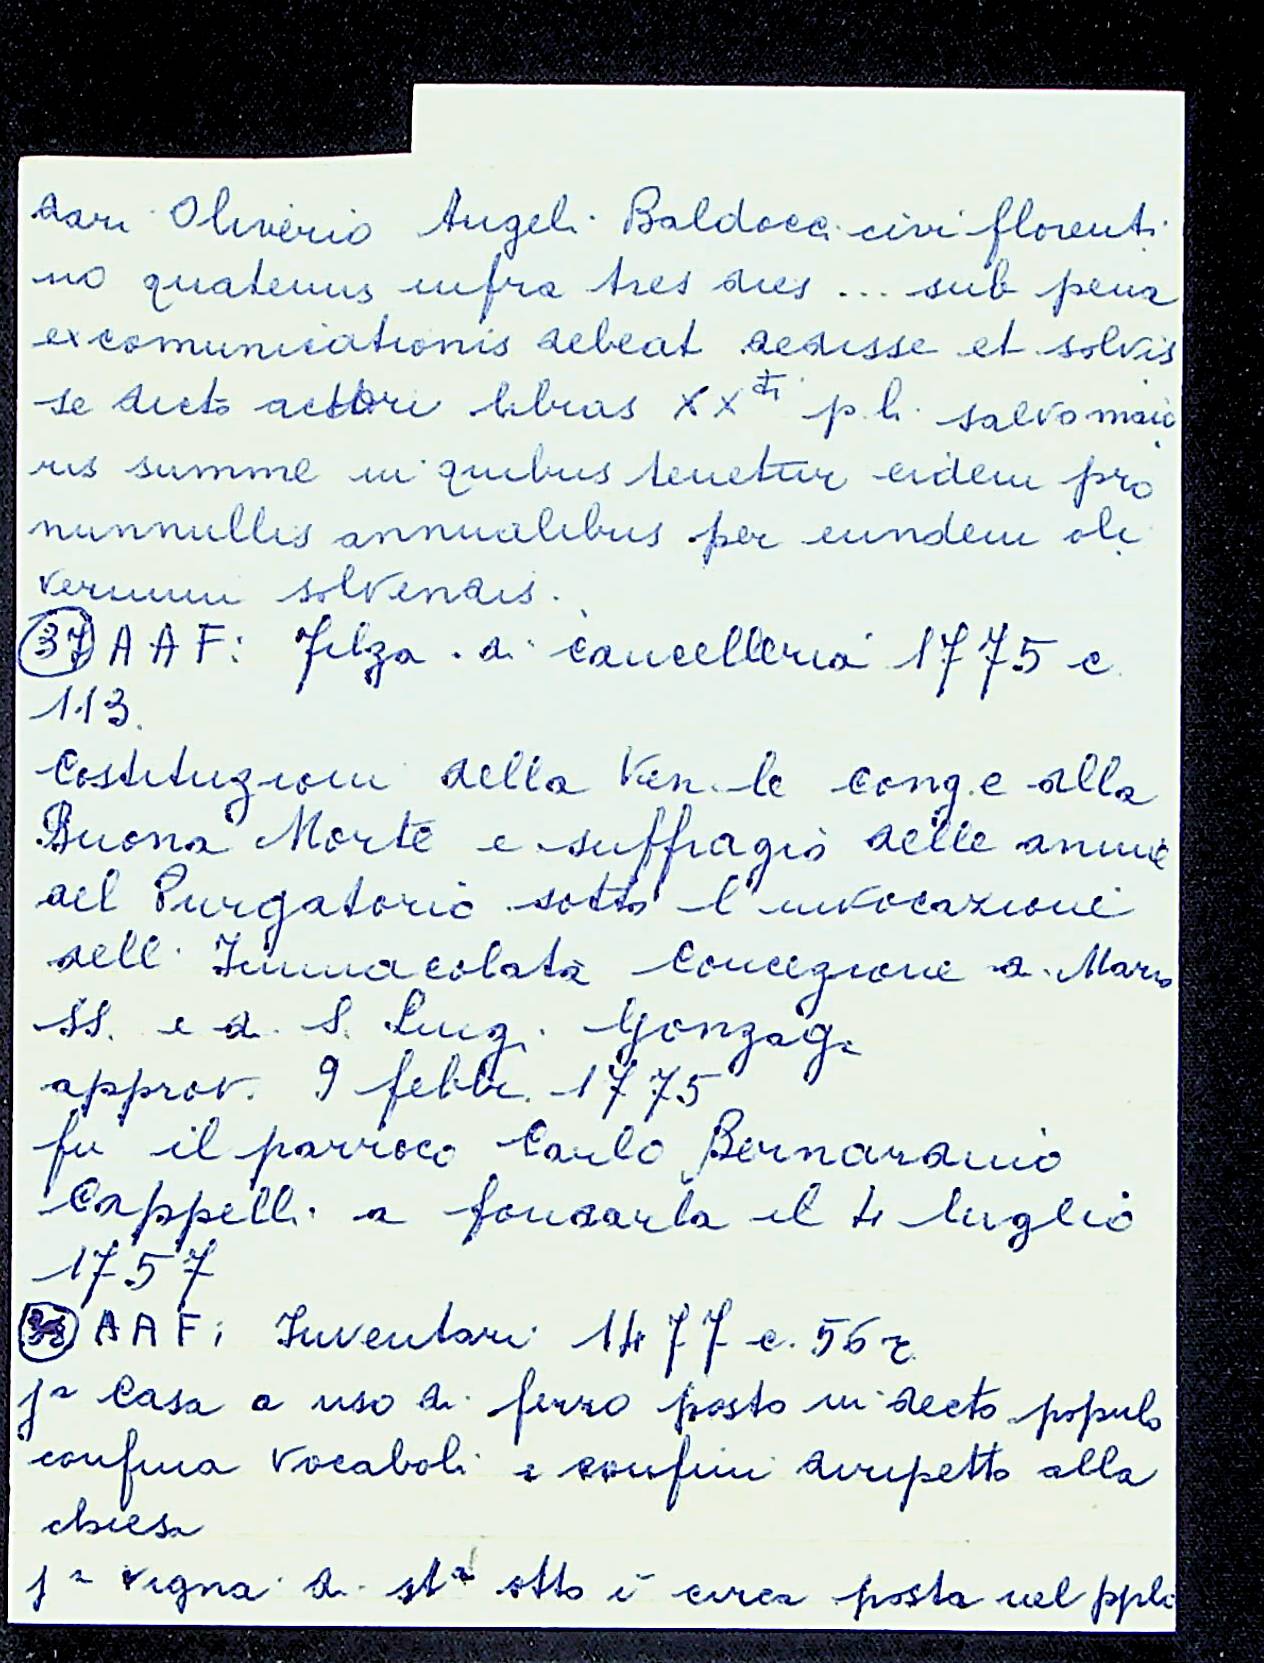 dari Oliverio Angeli Baldocci civi florenti
no quatenus infra tres dies ... sub pena
excomunicationis debeat dedisse et solvis
se dicto actori libras XXti p.li. salvo maio
ris summe in quibus tenetur eidem pro
nunnullis annualibus per eundem oli
verium solvendis.
37 AAF: Filza di cancelleria 1775 c.
113.
Costituzioni della Ven.le cong.e della
Buona Morte e suffragio delle anime
del Purgatorio sotto l'invocazione
dell'Immacolata Concezione di Maria
SS. e di S. Luigi Gonzaga
approv. 9 febbr. 1775
fu il parroco Carlo Bernardino
Cappelli a fondarla il 4 luglio
1757
38 AAF: Inventari 1477 c. 56 r
ja Casa a uso di ferro posto in decto populo
confina vocaboli e confini diripetto alla
chiesa
ja vigna di sta otto i circa posta nel pplo